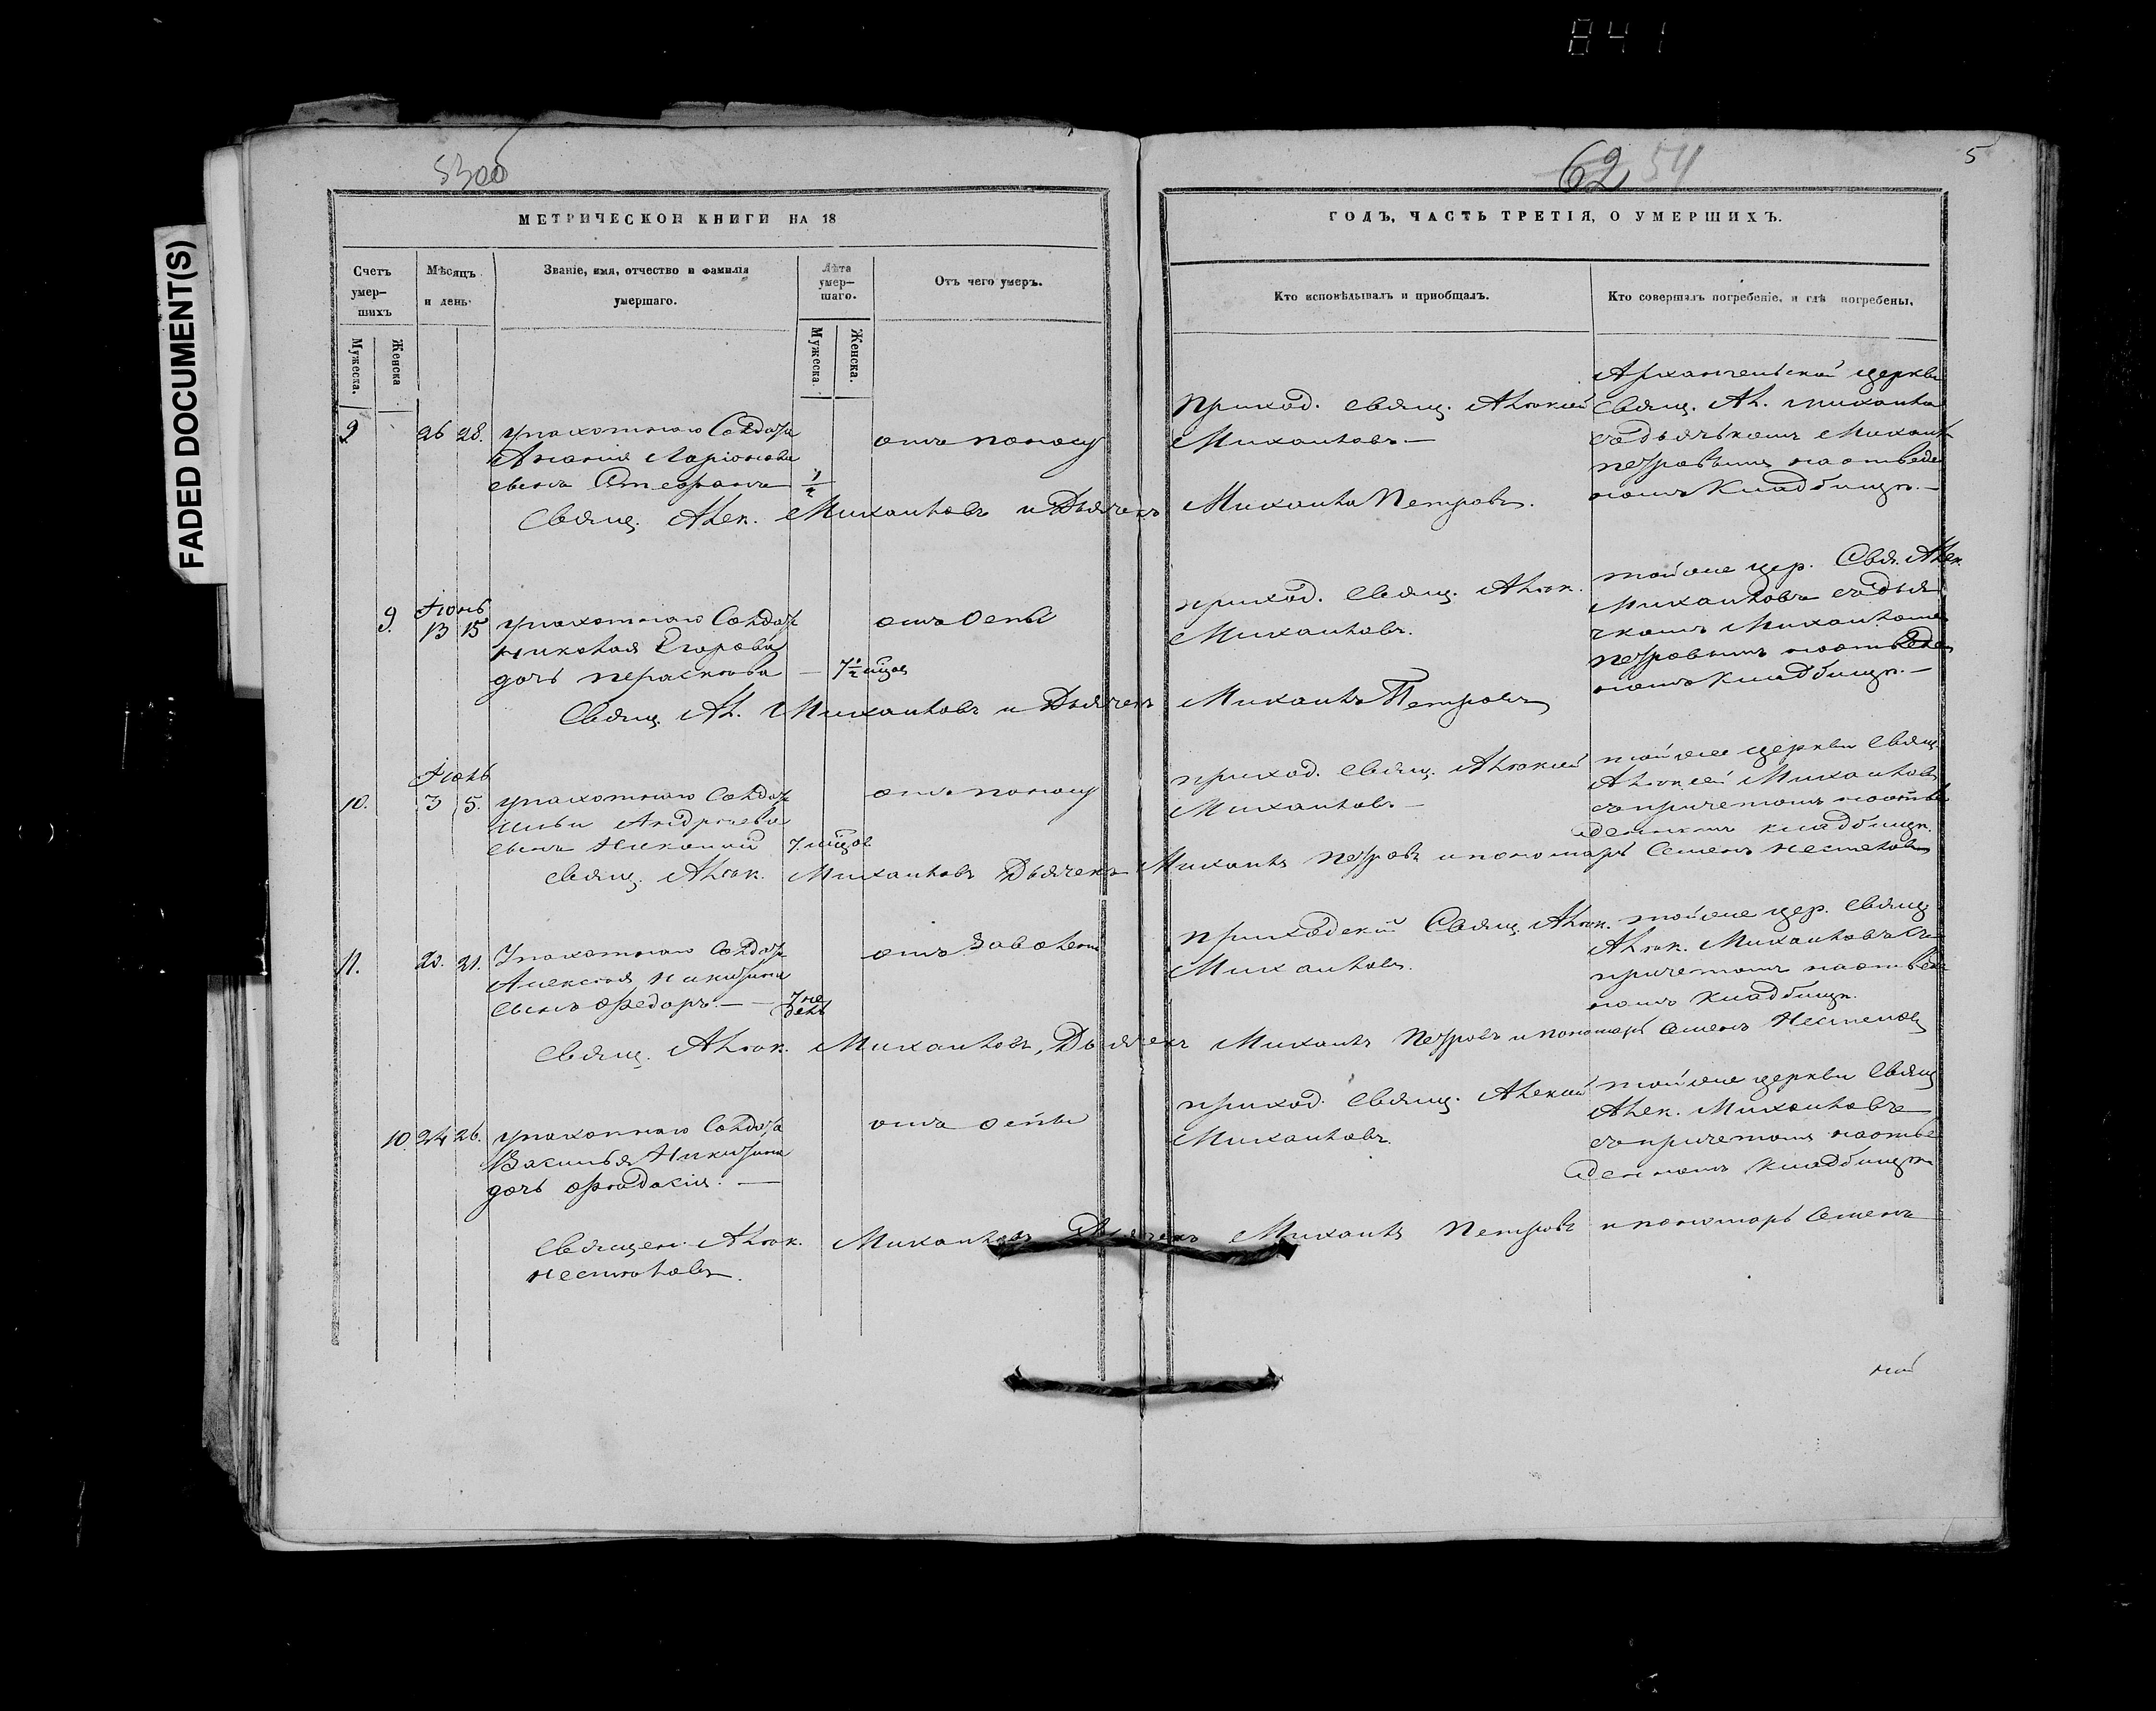 841
FADED DOCUMENT(S)
53об
62 54
5
МЕТРИЧЕСКОЙ КНИГИ НА 18
ГОДЪ, ЧАСТЬ ТРЕТІЯ, О УМЕРШИХЪ.
Счетъ умер-шихъ
Мужеска.
Женска
Мѣсяцъ и день.
Званіе, имя, отчество и фамилія умершаго.
Лѣта умер-шаго.
Мужеска.
Женска.
Отъ чего умеръ.
Кто исповѣдывалъ и приобщалъ.
Кто совершалъ погребеніе, и гдѣ погребены.
9
26 28.
упахотнаго Солдата
Анания Ларіонова
сынъ Стефанъ
1/2
отъ поносу
приход. свящ. Алѣксей
Михаиловъ —
Архангельской церкви
Свящ. Ал. Михаила
съ дьячькомъ Михаил
петровымъ наотведе
номъ Кладбищѣ. —
Свящ. Алек. Михаиловъ и Дьячекъ Михаила Петровъ.
9.
Июнь
13 15
упахотнаго Солдат
николая Егорова
дочь параскева —
7 1/2 мцов
отъ оспы
приход. Свящ. Алѣк.
Михаиловъ.
тойже цер. Свя. Алек.
Михаиловъ съ дья
чкомъ Михаиломъ
петровымъ наотведен
номъ Кладбищѣ. —
Свящ. Ал. Михаиловъ и Дьячекъ Михаилъ Петровъ
10.
Июль
3 5.
упахотнаго Солдат
Ильи Андреева
сынъ
7. мцов
отъ поносу
приход. Свящ. Алѣксей
Михаиловъ —
тойже церкви Свящ.
Алѣксей Михаиловъ
съ причетомъ наотве
денномъ кладбищѣ.
Свящ. Алѣк. Михаиловъ Дьячекъ Михаилъ Петровъ и пономарь Семенъ Нестеловъ
11.
20. 21.
Упахотнаго Солдат
Алексея Никитина
сынъ Федоръ. —
7 не
дель
отъ
приходский Свящ. Алѣк.
Михаиловъ.
тойже цер. Свящ.
Алѣк. Михаиловъ съ
причетомъ наотведе
номъ Кладбищѣ.
Свящ. Алѣк. Михаиловъ, Дьячекъ Михаилъ Петровъ и пономарь Семенъ
10.
24 26.
упахотнаго Солдата
Василья Никитина
дочь —
отъ оспы
приход. Свящ. Алексей
Михаиловъ.
тойже церкви Свящ
Алек. Михаиловъ
съ причетомъ наотве
денномъ Кладбищѣ
Священ. Алѣк. Михаиловъ Дьячекъ Михаилъ Петровъ и пономарь Семенъ
Нестѣловъ.